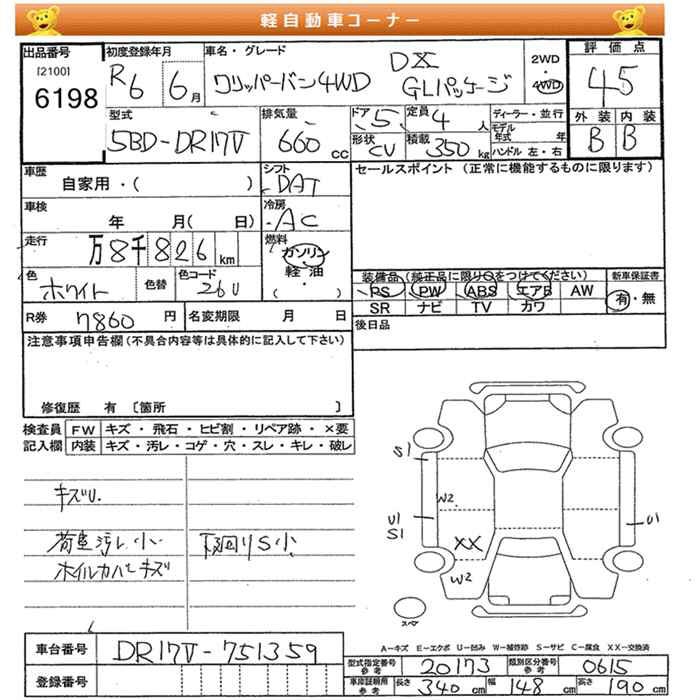 軽自動車コーナー
出品番号 [2100] 6198
初度登録年月 R6 6月
車名・グレード クリッパーバン4WD DX GLパッケージ
2WD・4WD
評価点 4.5
外装 B 内装 B
型式 5BD-DR17V
排気量 660 cc
ドア 5 定員 4 人
形状 CV 積載 350 kg
ディーラー・並行
モデル年式 年
ハンドル 左・右
車歴 自家用・( )
シフト DAT
セールスポイント (正常に機能するものに限ります)
車検 年 月( 日)
冷房 AC
走行 万8千826km
燃料 ガソリン 軽油 ( ・ )
色 ホワイト 色替 色コード 26U
装備品(純正品に限り○をつけてください) 新車保証書
PS PW ABS エアB AW 有・無
SR ナビ TV カワ
R券 7860 円 名変期限 月 日
後日品
注意事項申告欄(不具合内容等は具体的に記入して下さい)
修復歴 有 [箇所 ]
検査員 FW キズ・飛石・ヒビ割・リペア跡・×要
記入欄 内装 キズ・汚レ・コゲ・穴・スレ・キレ・破レ
キズU.
荷室汚レ小
下回りS小
ホイルカバーキズ
S1
W2
U1
S1
U1
XX
W2
スペア
A-キズ E-エクボ U-凹み W-補修跡 S-サビ C-腐食 XX-交換済
車台番号 DR17V-751359
登録番号
型式指定番号 参考 20173 類別区分番号 参考 0615
車庫証明用 参考 長さ 340 cm 幅 148 cm 高さ 190 cm